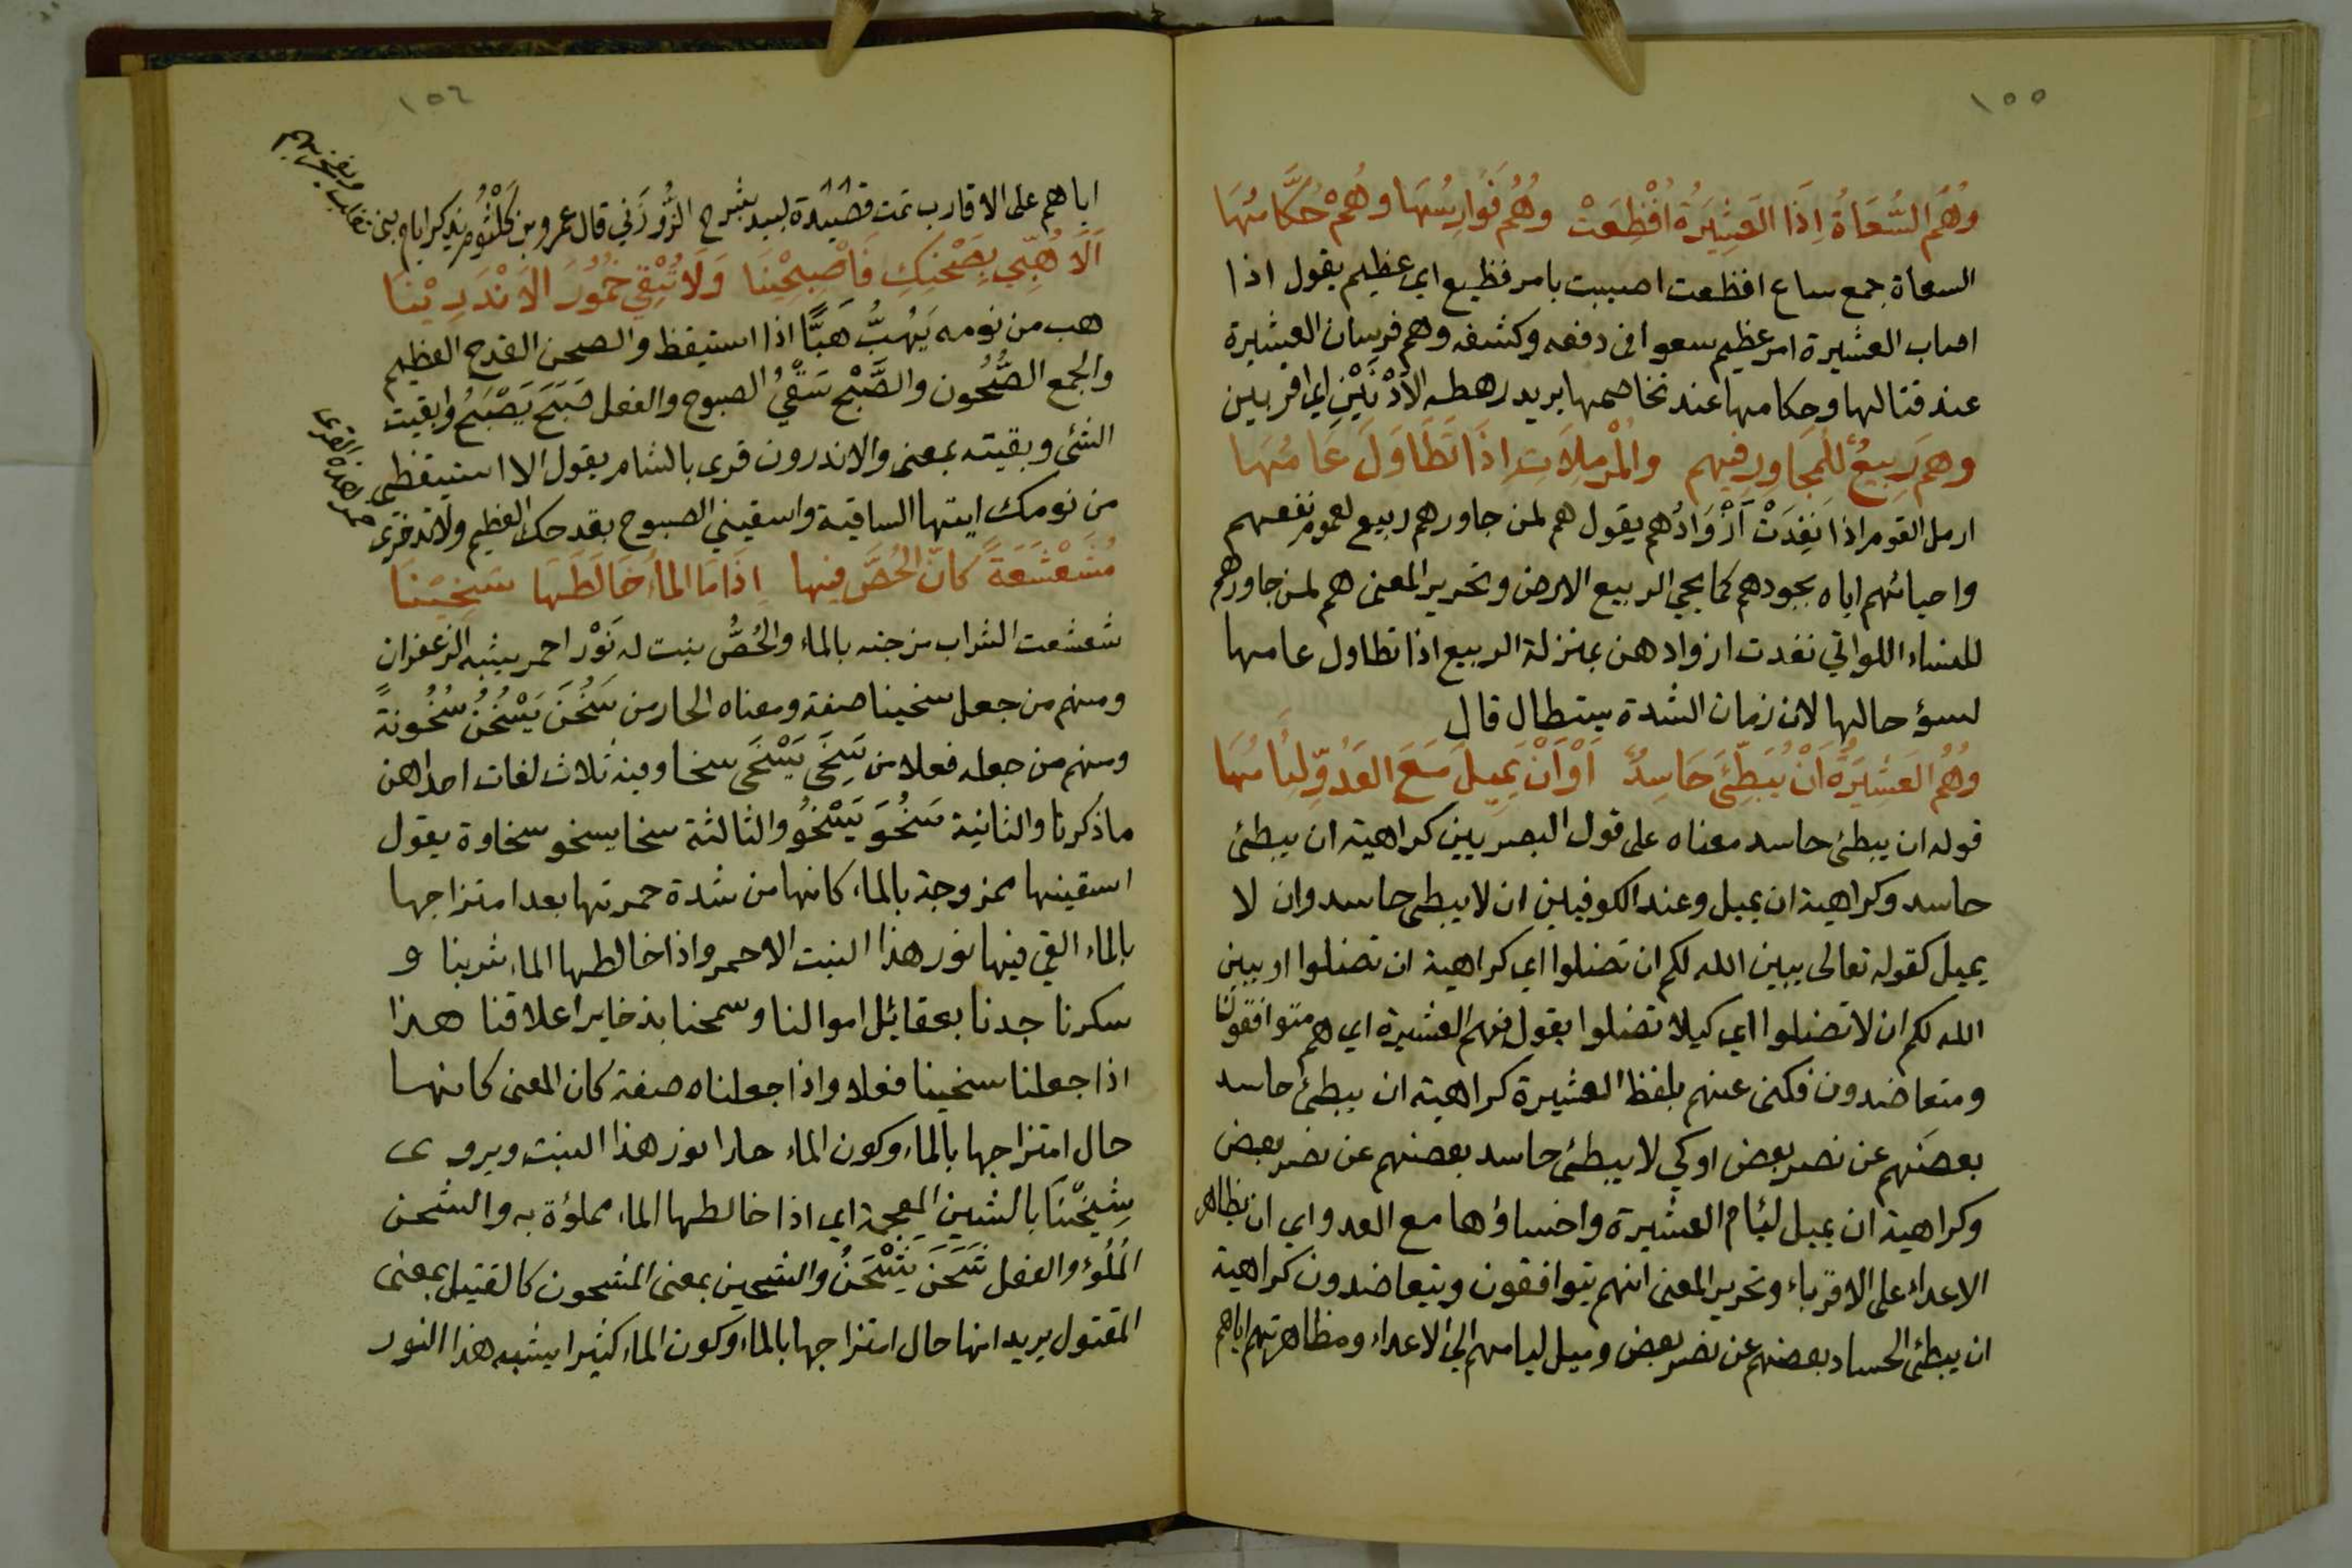 ١٥٥
وَهُمُ السُّعَاةُ اِذَا العَشِيْرَةُ اُفْظِعَتْ وَهُمُ فَوَارِسُهَا وَهُمْ حُكَّامُهَا
السعاة جمع ساع افظعت اصيبت بامر فظيع اي عظيم يقول اذا
اصاب العشيرة امر عظيم سعوا فى دفعه وكشفه وهم فرسان العشيرة
عند قتالها وحكامها عند تخاصمها يريد رهطه الاَدْنَيْنِ اي اقربين
وهم رَبِيعٌ للمُجَاوِرِ فيهم والمُرْمِلَاتِ اِذَا تَطَاوَلَ عَامُهَا
ارمل القوم اذا نَفِدَتْ اَزْوَادُهم يقول هم لمن جاورهم ربيع لعموم نفعهم
واحيائهم اياه بجودهم كما يحيي الربيع الارض وتحرير المعنى هم لمن جاورهم
للنساء اللواتي نفدت ازوادهن بمنزلة الربيع اذا تطاول عامها
لسؤ حالها لان زمان الشدة يستطال قال
وَهُمُ العَشِيْرَةُ اَنْ يُبَطِّئَ حَاسِدٌ اَوْ اَنْ يَمِيلَ مَعَ العَدُوِّ لِئَامُهَا
قوله ان يبطئ حاسد معناه على قول البصريين كراهية ان يبطئ
حاسد وكراهية ان يميل وعند الكوفيين ان لا يبطئ حاسد وان لا
يميل كقوله تعالى يبين الله لكم ان تضلوا اي كراهية ان تضلوا او يبين
الله لكم ان لا تضلوا اي كيلا تضلوا يقول فهم العشيرة اي هم متوافقون
ومتعاضدون فكنى عنهم بلفظ العشيرة كراهية ان يبطئ حاسد
بعضهم عن نصر بعض او كي لا يبطئ حاسد بعضهم عن نصر بعض
وكراهية ان يميل لئام العشيرة واخساؤها مع العدو اي ان يظاهر
الاعداء على الاقرباء وتحرير المعنى انهم يتوافقون ويتعاضدون كراهية
ان يبطئ الحساد بعضهم عن نصر بعض وميل ليامهم الى الاعداء ومظاهرتهم اياهم
١٥٦
اياهم على الاقارب تمت قصيدة لبيد بشرح الزُّوْزَني قال عمرو بن كَلْثُوم يذكر ايام بنى تغلب ويفتخر بهم
اَلَا هُبّي بِصَحْنِكِ فَاَصْبِحِيْنَا وَلَا تُبْقِي خُمُوْرَ الاَنْدَرِيْنَا
هب من نومه يَهُبُّ هَبًّا اذا استيقظ والصحن القدح العظيم
والجمع الصُّحُون والصَّبْح سَقْيُ الصبوح والفعل صَبَحَ يَصْبَحُ وابقيت
الشئ وبقيته بمعنى والاندرون قرى بالشام يقول الا استيقظي
من نومك ايتها الساقية واسقيني الصبوح بقدحك العظيم ولا تدخرى
خمر هذه القرى
مُشَعْشَعَةً كَاَنَّ الحُصَّ فيها اِذَا مَا الماءُ خَالَطَهَا سَخِيْنَا
شعشعت الشراب مزجته بالماء والحُصُّ نبت له نَوْر احمر يشبه الزعفران
ومنهم من جعل سخينا صفة ومعناه الحار من سَخُنَ يَسْخُنُ سُخُونةً
ومنهم من جعله فعلا من سَخِيَ يَسْخَى سخا وفيه ثلاث لغات احداهن
ما ذكرنا والثانية سَخُوَ يَسْخُوُ والثالثة سخا يسخو سخاوة يقول
اسقينيها ممزوجة بالماء كانها من شدة حمرتها بعد امتزاجها
بالماء القي فيها نور هذا النبت الاحمر واذا خالطها الماء شربنا و
سكرنا جدنا بعقائل اموالنا وسمحنا بذخاير اعلاقنا هذا
اذا جعلنا سخينا فعلا واذا جعلناه صفة كان المعنى كانها
حال امتزاجها بالماء وكون الماء حارا نور هذا النبت ويروى
شِيْحْنَا بالشين المعجمة اي اذا خالطها الماء مملوؤة به والشحن
المَلْؤُ والفعل شَحَنَ يَشْحَنُ والشحين بمعنى المشحون كالقتيل بمعنى
المقتول يريد انها حال امتزاجها بالماء وكون الماء كثيرا يشبه هذا النور